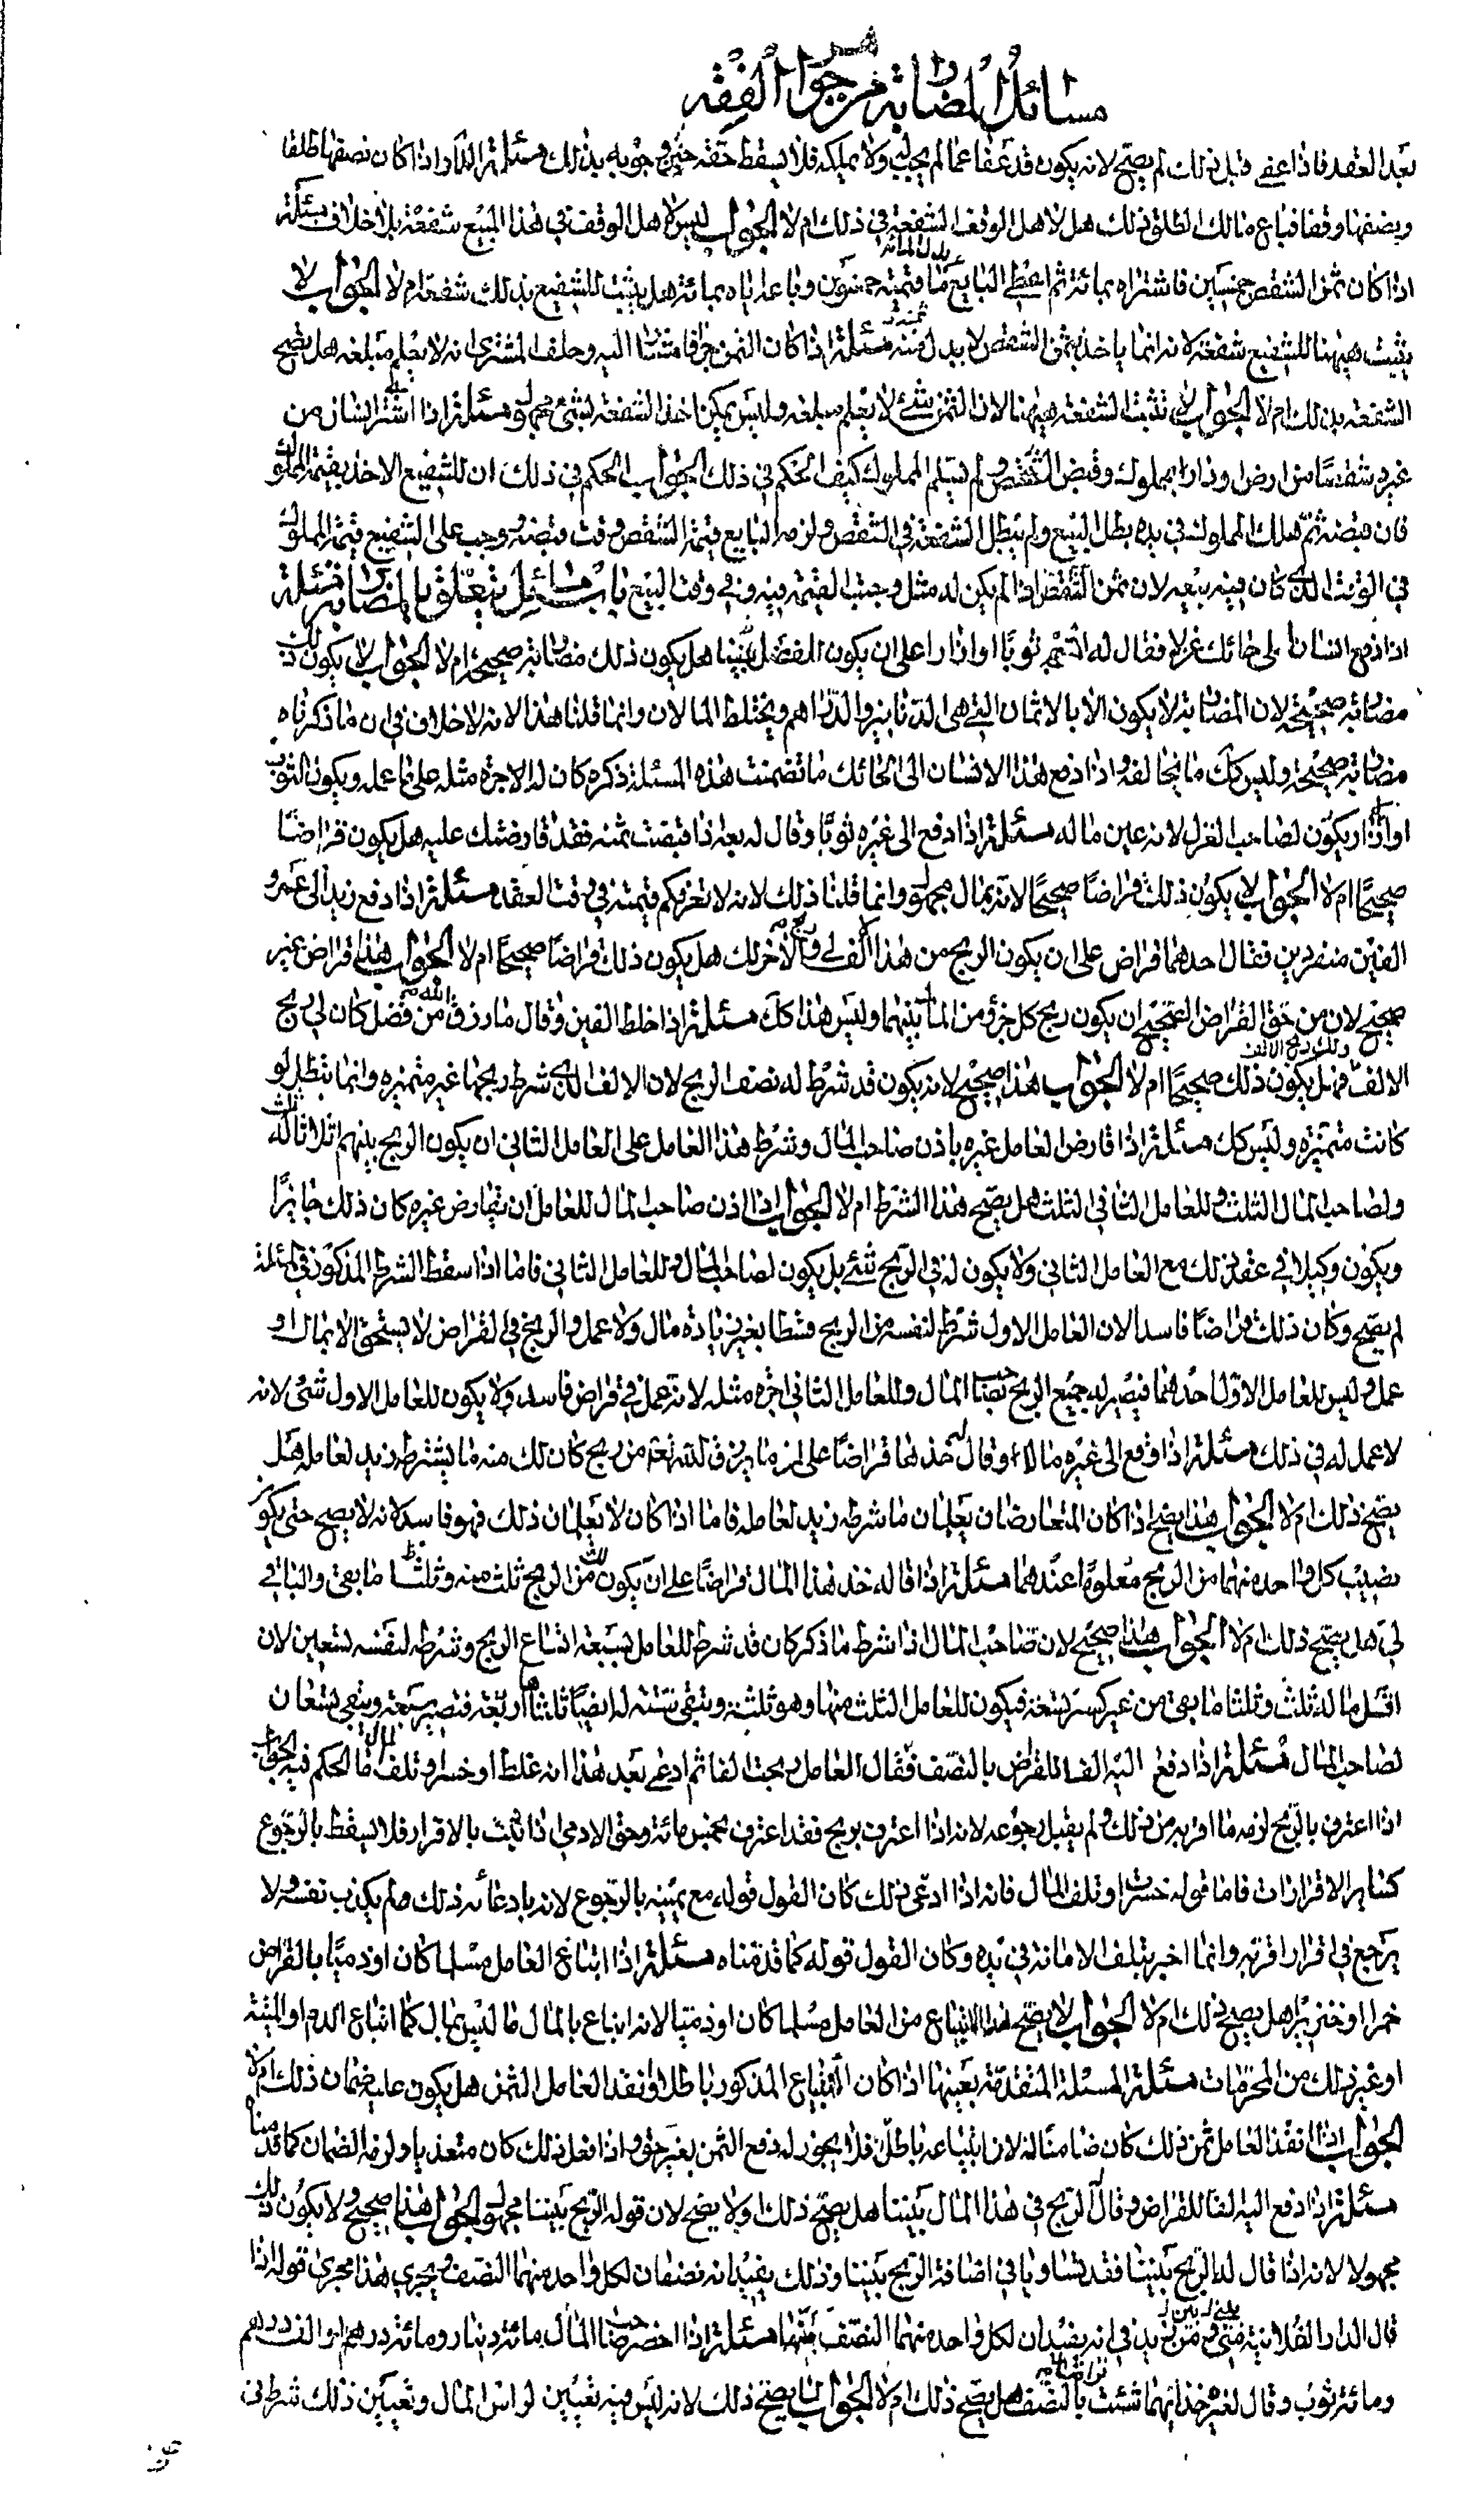 مسائل المضاربة من جواهر الفقه
بعد العقد فاذا عفى قبل ذلك لم يصح لانه يكون قد عفا عما لم يجب له ولا يملكه فلا يسقط حقه حين وجوبه بذلك مسئلة الدار اذا كان نصفها طلقا
ونصفها وقفا فباع مالك الطلق ذلك هل لاهل الوقف الشفعة في ذلك ام لا الجواب ليس لاهل الوقف في هذا المبيع شفعة بلا خلاف مسئلة
اذا كان ثمن الشقص خمسين فاشتراه بمائة ثم اعطى البايع بدل المائة ما قيمته خمسون وباعه اياه بمائة هل يثبت للشفيع بذلك شفعة ام لا الجواب لا
يثبت هيهنا للشفيع شفعة لانه انما ياخذ بثمن الشقص لا ببدل ثمنه مسئلة اذا كان الثمن جزافا مشارا اليه وحلف المشتري انه لا يعلم مبلغه هل تصح
الشفعة بذلك ام لا الجواب لا تثبت الشفعة هيهنا لان الثمن شئ لا يعلم مبلغه وليس يمكن اخذ الشفعة بشئ مجهول مسئلة اذا اشترى انسان من
غيره شقصا من ارض او دار بمملوك وقبض الشقص ولم يسلم المملوك كيف الحكم في ذلك الجواب الحكم في ذلك ان للشفيع الاخذ بقيمة المملوك
فان قبضه ثم هلك المملوك في يده بطل البيع ولم تبطل الشفعة في الشقص ولزمه البايع قيمة الشقص وقت قبضه ووجب على الشفيع قيمة المملوك
في الوقت الذي كان فيه بيعه لان ثمن الشقص اذا لم يكن له مثل وجبت القيمة فيه وفي وقت البيع باب مسائل يتعلق بالمضاربة مسئلة
اذا دفع انسان الى حائك غزلا فقال له انسجه ثوبا او ازارا على ان يكون الفضل بيننا هل يكون ذلك مضاربة صحيحة ام لا الجواب لا يكون ذلك
مضاربة صحيحة لان المضاربة لا يكون الا بالاثمان التي هي الدنانير والدراهم ويختلط المالان وانما قلنا هذا لانه لا خلاف في ان ما ذكرناه
مضاربة صحيحة وليس كك ما يخالفه واذا دفع هذا الانسان الى الحائك ما تضمنت هذه المسئلة ذكره كان له الاجرة مثله على ما عمله ويكون الثوب
او الازار يكون لصاحب الغزل لانه عين ماله مسئلة اذا دفع الى غيره ثوبا وقال له بعه فاذا قبضت ثمنه فقد قارضتك عليه هل يكون قراضا
صحيحا ام لا الجواب لا يكون ذلك قراضا صحيحا لانه بمال مجهول وانما قلنا ذلك لانه لا تعرف كم قيمته في وقت العقد مسئلة اذا دفع زيد الى عمرو
الفين منفردين فقال احدهما قراض على ان يكون الربح من هذا الالف لي وربح الاخر لك هل يكون ذلك قراضا صحيحا ام لا الجواب هذا قراض غير
صحيح لان من حق القراض الصحيح ان يكون ربح كل جزء من المال بينهما وليس هذا كك مسئلة اذا خلط الفين وقال ما رزق الله من فضل كان لي ربح
الالف ولك ربح الالف هل يكون ذلك صحيحا ام لا الجواب هذا صحيح لانه يكون قد شرط له نصف الربح لان الالف الذي شرط ربحها غير متميزة وانما تبطل لو
كانت متميزة وليس كك مسئلة اذا قارض العامل غيره باذن صاحب المال وشرط هذا العامل على العامل الثاني ان يكون الربح بينهم اثلاثا له ثلث
ولصاحب المال الثلث وللعامل الثاني الثلث هل يصح هذا الشرط ام لا الجواب اذا اذن صاحب المال للعامل ان يقارض غيره كان ذلك جايزا
ويكون وكيلا في عقد ذلك مع العامل الثاني ولا يكون له في الربح شئ بل يكون لصاحب المال وللعامل الثاني فاما اذا سقط الشرط المذكور في المسئلة
لم يصح وكان ذلك قراضا فاسدا لان العامل الاول شرط لنفسه من الربح قسطا بغير زيادة مال ولا عمل والربح في القراض لا يستحق الا بمال او
عمل وليس للعامل الاول احدهما فيصير جميع الربح لصاحب المال وللعامل الثاني اجرة مثله لانه عمل في قراض فاسد ولا يكون للعامل الاول شئ لانه
لا عمل له في ذلك مسئلة اذا دفع الى غيره مالا وقال له خذ هذا قراضا على ان ما يرزق الله تعم من ربح كان لك منه ما يشترطه زيد لعامله هل
يصح ذلك ام لا الجواب هذا يصح اذا كان المتقارضان يعلمان ما شرطه زيد لعامله فاما اذا كان لا يعلمان ذلك فهو فاسد لانه لا يصح حتى يكون
نصيب كل واحد منهما من الربح معلوما عندهما مسئلة اذا قال له خذ هذا المال قراضا على ان يكون لك من الربح ثلث منه وثلثا ما بقى والباقي
لي هل يصح ذلك ام لا الجواب هذا صحيح لان صاحب المال اذا شرط ما ذكر كان قد شرط للعامل سبعة اتساع الربح وشرطه لنفسه تسعين لان
اقل ما له ثلث وثلثا ما بقى من غير كسر تسعة فيكون للعامل الثلث منها وهو ثلثة وتبقى ستة له ايضا ثلثاها اربعة فتصير سبعة وتبقى تسعان
لصاحب المال مسئلة اذا دفع اليه الفا للقراض بالنصف فقال العامل ربحت الفا ثم ادعى بعد هذا انه غلط او خسر او تلف المال ما الحكم فيه الجواب
اذا اعترف بالربح لزمه ما اقر به من ذلك ولم يقبل رجوعه لانه اذا اعترف بربح فقد اعترف بخمس مائة وحق الادمي اذا ثبت بالاقرار فلا يسقط بالرجوع
كساير الاقرارات فاما قوله خسرت او تلف المال فانه اذا ادعى ذلك كان القول قوله مع يمينه بالرجوع لانه بادعائه ذلك لم يكذب نفسه ولا
يرجع في اقرار اقر به وانما اخبر بتلف الامانة في يده وكان القول قوله كما قدمناه مسئلة اذا ابتاع العامل مسلما كان او ذميا بالقراض
خمرا او خنزيرا هل يصح ذلك ام لا الجواب لا يصح هذا الابتياع من العامل مسلما كان او ذميا لانه ابتاع بالمال ما ليس بمال كما ابتاع الدم او الميتة
او غير ذلك من المحرمات مسئلة المسئلة المتقدمة بعينها اذا كان الابتياع المذكور باطلا ونقد العامل الثمن هل يكون عليه ضمان ذلك ام لا
الجواب اذا نقد العامل ثمن ذلك كان ضامنا له لان ابتياعه باطل فلا يجوز له دفع الثمن بغير حق واذا فعل ذلك كان متعديا ولزمه الضمان كما قدمنا
مسئلة اذا دفع اليه الفا للقراض وقال الربح في هذا المال بيننا هل يصح ذلك او لا يصح لان قوله الربح بيننا مجهول الجواب هذا صحيح ولا يكون ذلك
مجهولا لانه اذا قال له الربح بيننا فقد تساويا في اضافة الربح بيننا وذلك يفيد انه نصفان لكل واحد منهما النصف ويجري هذا مجرى قوله اذا
قال الدار الفلانية بيني وبين زيد في انه يفيد ان لكل واحد منهما النصف منها مسئلة اذا احضر صاحب المال مائة دينار ومائة درهم او الف درهم
ومائة ثوب وقال لغيره خذ ايهما شئت قراضا بالنصف هل يصح ذلك ام لا الجواب لا يصح ذلك لانه ليس فيه تعيين لراس المال وتعيين ذلك شرط في